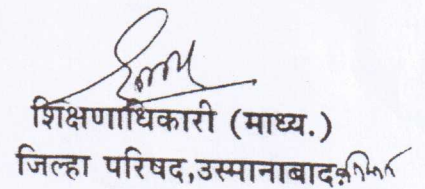 शिक्षणाधिकारी (माध्य.)
जिल्हा परिषद,उस्मानाबाद